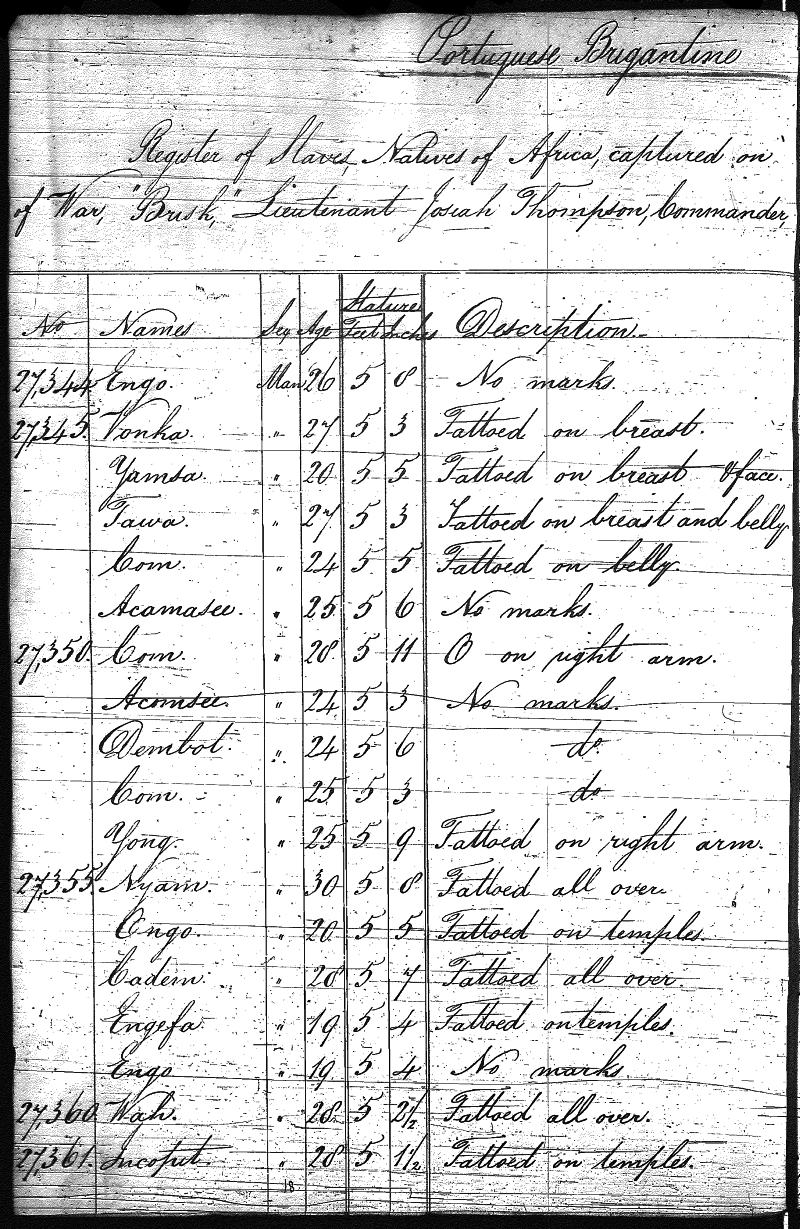 Portuguese Brigantine
Register of Slaves, Natives of Africa, captured on
of War, "Brisk," Lieutenant Josiah Thompson, Commander,
Stature
No Names Sex Age Feet Inches Description.
27,344 Engo. Man 26 5 8 No marks.
27,345. Vonka. " 27 5 3 Tattoed on breast.
Yamsa. " 20 5 5 Tattoed on breast & face.
Tawa. " 27 5 3 Tattoed on breast and belly
Com. " 24 5 5 Tattoed on belly
Acamasee. " 25 5 6 No marks.
27,350. Com. " 28 5 11 O on right arm.
Acomsee. " 24 5 3 No marks.
Dembot. " 24 5 6 do
Com. " 25 5 3 do
Yong. " 25 5 9 Tattoed on right arm.
27,355. Nyam. " 30 5 8 Tattoed all over.
Ongo. " 20 5 5 Tattoed on temples.
Cadem. " 28 5 7 Tattoed all over
Engefa " 19 5 4 Tattoed on temples.
Engo " 19 5 4 No marks.
27,360 Wah. " 28 5 2½ Tattoed all over.
27,361. " 28 5 1½ Tattoed on temples.
18